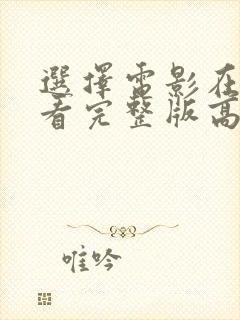 選擇雷影在
看完整版高
唯吟